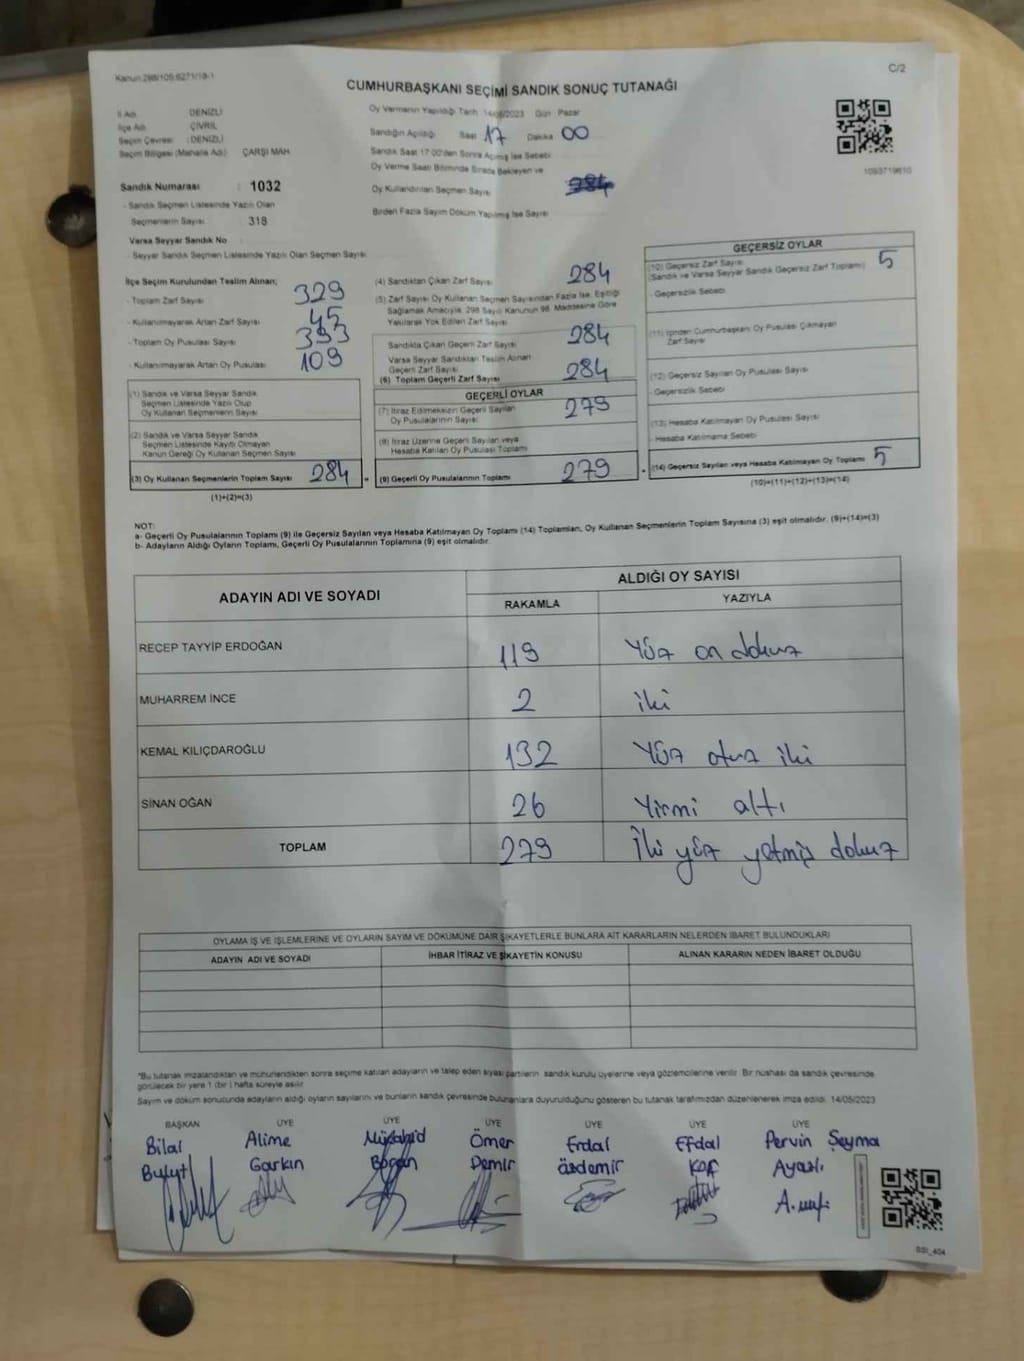 Kanun:298/105;6271/18-1
C/2
CUMHURBAŞKANI SEÇİMİ SANDIK SONUÇ TUTANAĞI
İl Adı DENİZLİ
İlçe Adı ÇİVRİL
Seçim Çevresi :DENİZLİ
Seçim Bölgesi (Mahalle Adı) ÇARŞI MAH.
Sandık Numarası : 1032
- Sandık Seçmen Listesinde Yazılı Olan
Seçmenlerin Sayısı 318
Varsa Seyyar Sandık No
- Seyyar Sandık Seçmen Listesinde Yazılı Olan Seçmen Sayısı
Oy Vermenin Yapıldığı Tarih 14/05/2023 Gün : Pazar
Sandığın Açıldığı Saat 17 Dakika 00
Sandık Saat 17:00'den Sonra Açılmış İse Sebebi
Oy Verme Saati Bitiminde Sırada Bekleyen ve
Oy Kullandırılan Seçmen Sayısı
Birden Fazla Sayım Döküm Yapılmış İse Sayısı
1093719610
İlçe Seçim Kurulundan Teslim Alınan;
- Toplam Zarf Sayısı 329
- Kullanılmayarak Artan Zarf Sayısı 45
- Toplam Oy Pusulası Sayısı 393
- Kullanılmayarak Artan Oy Pusulası 109
(1) Sandık ve Varsa Seyyar Sandık
Seçmen Listesinde Yazılı Olup
Oy Kullanan Seçmenlerin Sayısı
(2) Sandık ve Varsa Seyyar Sandık
Seçmen Listesinde Kayıtlı Olmayan
Kanun Gereği Oy Kullanan Seçmen Sayısı
(3) Oy Kullanan Seçmenlerin Toplam Sayısı 284
(1)+(2)=(3)
(4) Sandıktan Çıkan Zarf Sayısı 284
(5) Zarf Sayısı Oy Kullanan Seçmen Sayısından Fazla İse, Eşitliği
Sağlamak Amacıyla, 298 Sayılı Kanunun 98. Maddesine Göre
Yakılarak Yok Edilen Zarf Sayısı
Sandıkta Çıkan Geçerli Zarf Sayısı 284
Varsa Seyyar Sandıktan Teslim Alınan
Geçerli Zarf Sayısı
(6) Toplam Geçerli Zarf Sayısı 284
GEÇERLİ OYLAR
(7) İtiraz Edilmeksizin Geçerli Sayılan
Oy Pusulalarının Sayısı 279
(8) İtiraz Üzerine Geçerli Sayılan veya
Hesaba Katılan Oy Pusulası Toplamı
(9) Geçerli Oy Pusulalarının Toplamı 279
GEÇERSİZ OYLAR
(10) Geçersiz Zarf Sayısı 5
(Sandık ve Varsa Seyyar Sandık Geçersiz Zarf Toplamı)
- Geçersizlik Sebebi
(11) İçinden Cumhurbaşkanı Oy Pusulası Çıkmayan
Zarf Sayısı
(12) Geçersiz Sayılan Oy Pusulası Sayısı
- Geçersizlik Sebebi
(13) Hesaba Katılmayan Oy Pusulası Sayısı
- Hesaba Katılmama Sebebi
(14) Geçersiz Sayılan veya Hesaba Katılmayan Oy Toplamı 5
(10)+(11)+(12)+(13)=(14)
NOT:
a- Geçerli Oy Pusulalarının Toplamı (9) ile Geçersiz Sayılan veya Hesaba Katılmayan Oy Toplamı (14) Toplamları, Oy Kullanan Seçmenlerin Toplam Sayısına (3) eşit olmalıdır. (9)+(14)=(3)
b- Adayların Aldığı Oyların Toplamı, Geçerli Oy Pusulalarının Toplamına (9) eşit olmalıdır.
ADAYIN ADI VE SOYADI
ALDIĞI OY SAYISI
RAKAMLA YAZIYLA
RECEP TAYYİP ERDOĞAN 119 Yüz on dokuz
MUHARREM İNCE 2 iki
KEMAL KILIÇDAROĞLU 132 Yüz otuz iki
SİNAN OĞAN 26 Yirmi altı
TOPLAM 279 İki yüz yetmiş dokuz
OYLAMA İŞ VE İŞLEMLERİNE VE OYLARIN SAYIM VE DÖKÜMÜNE DAİR ŞİKAYETLERLE BUNLARA AİT KARARLARIN NELERDEN İBARET BULUNDUKLARI
ADAYIN ADI VE SOYADI İHBAR İTİRAZ VE ŞİKAYETİN KONUSU ALINAN KARARIN NEDEN İBARET OLDUĞU
*Bu tutanak imzalandıktan ve mühürlendikten sonra seçime katılan adayların ve talep eden siyasi partilerin sandık kurulu üyelerine veya gözlemcilerine verilir. Bir nüshası da sandık çevresinde
görülecek bir yere 1 (bir ) hafta süreyle asılır.
Sayım ve döküm sonucunda adayların aldığı oyların sayılarını ve bunların sandık çevresinde bulunanlara duyurulduğunu gösteren bu tutanak tarafımızdan düzenlenerek imza edildi. 14/05/2023
BAŞKAN ÜYE ÜYE ÜYE ÜYE ÜYE ÜYE
Bilal Alime Mücahid Ömer Erdal Efdal Pervin Şeyma
Bulut Garkın Boğan Demir özdemir Ayazlı